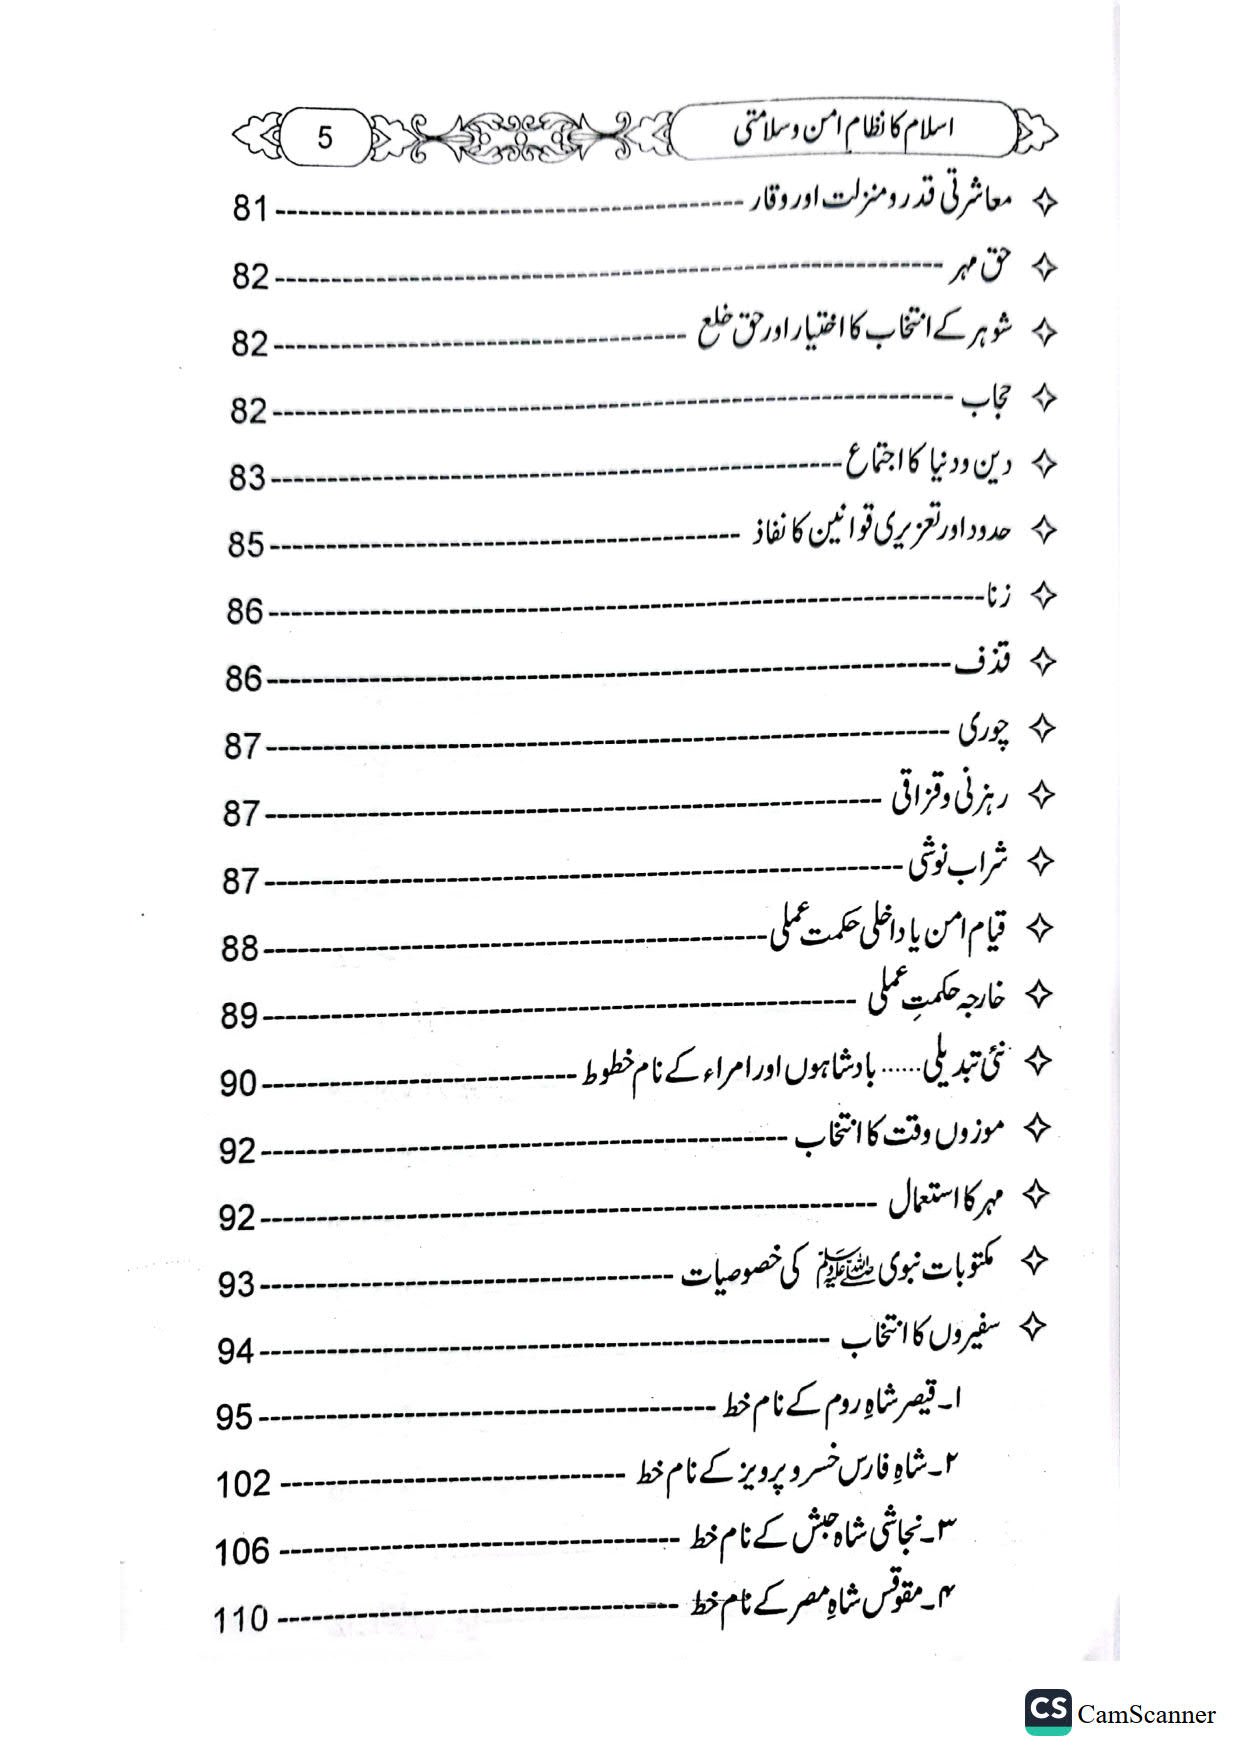 اسلام کا نظام امن وسلامتی 5
معاشرتی قدر و منزلت اور وقار 81
حق مہر 82
شوہر کے انتخاب کا اختیار اور حق خلع 82
حجاب 82
دین و دنیا کا اجتماع 83
حدود اور تعزیری قوانین کا نفاذ 85
زنا 86
قذف 86
چوری 87
رہزنی و قزاقی 87
شراب نوشی 87
قیام امن یا داخلی حکمت عملی 88
خارجہ حکمتِ عملی 89
نئی تبدیلی...... بادشاہوں اور امراء کے نام خطوط 90
موزوں وقت کا انتخاب 92
مہر کا استعمال 92
مکتوبات نبوی ﷺ کی خصوصیات 93
سفیروں کا انتخاب 94
۱۔ قیصر شاہِ روم کے نام خط 95
۲۔ شاہِ فارس خسرو پرویز کے نام خط 102
۳۔ نجاشی شاہ حبش کے نام خط 106
۴۔ مقوقس شاہِ مصر کے نام خط 110
CS CamScanner